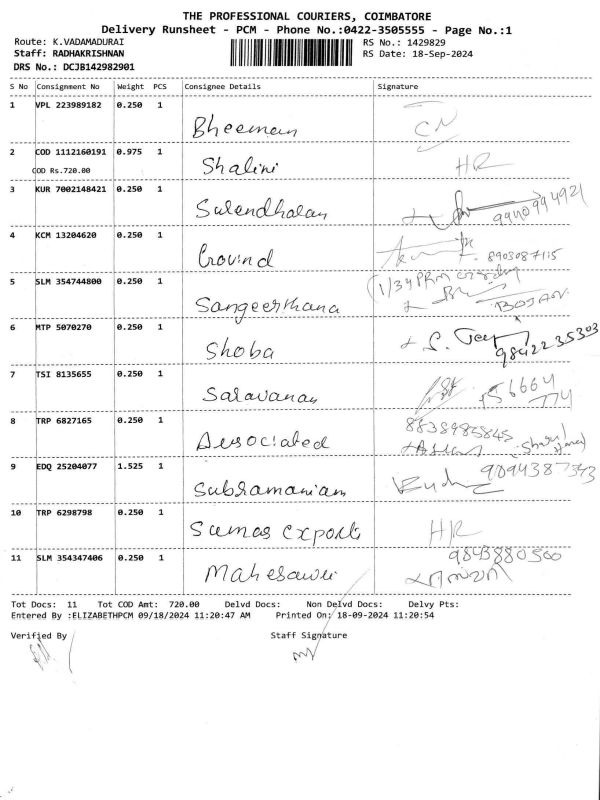 THE PROFESSIONAL COURIERS, COIMBATORE
Delivery Runsheet - PCM - Phone No.:0422-3505555 - Page No.:1
Route: K.VADAMADURAI RS No.: 1429829
Staff: RADHAKRISHNAN RS Date: 18-Sep-2024
DRS No.: DCJB142982901
S No Consignment No Weight PCS Consignee Details Signature
1 VPL 223989182 0.250 1
Bheeman CN
2 COD 1112160191 0.975 1
COD Rs.720.00 Shalini HR
3 KUR 7002148421 0.250 1
Surendharan 9940994921
4 KCM 13204620 0.250 1
Govind 8903087115
5 SLM 354744800 0.250 1
Sangeerthana
6 MTP 5070270 0.250 1
Shoba 9842235303
7 TSI 8135655 0.250 1
Saravanan
8 TRP 6827165 0.250 1
Associated 8838985845
9 EDQ 25204077 1.525 1
Subramaniam 9094387343
10 TRP 6298798 0.250 1
Sumas Exports HR
11 SLM 354347406 0.250 1
Maheswari 9843880500
Tot Docs: 11 Tot COD Amt: 720.00 Delvd Docs: Non Delvd Docs: Delvy Pts:
Entered By :ELIZABETHPCM 09/18/2024 11:20:47 AM Printed On: 18-09-2024 11:20:54
Verified By Staff Signature